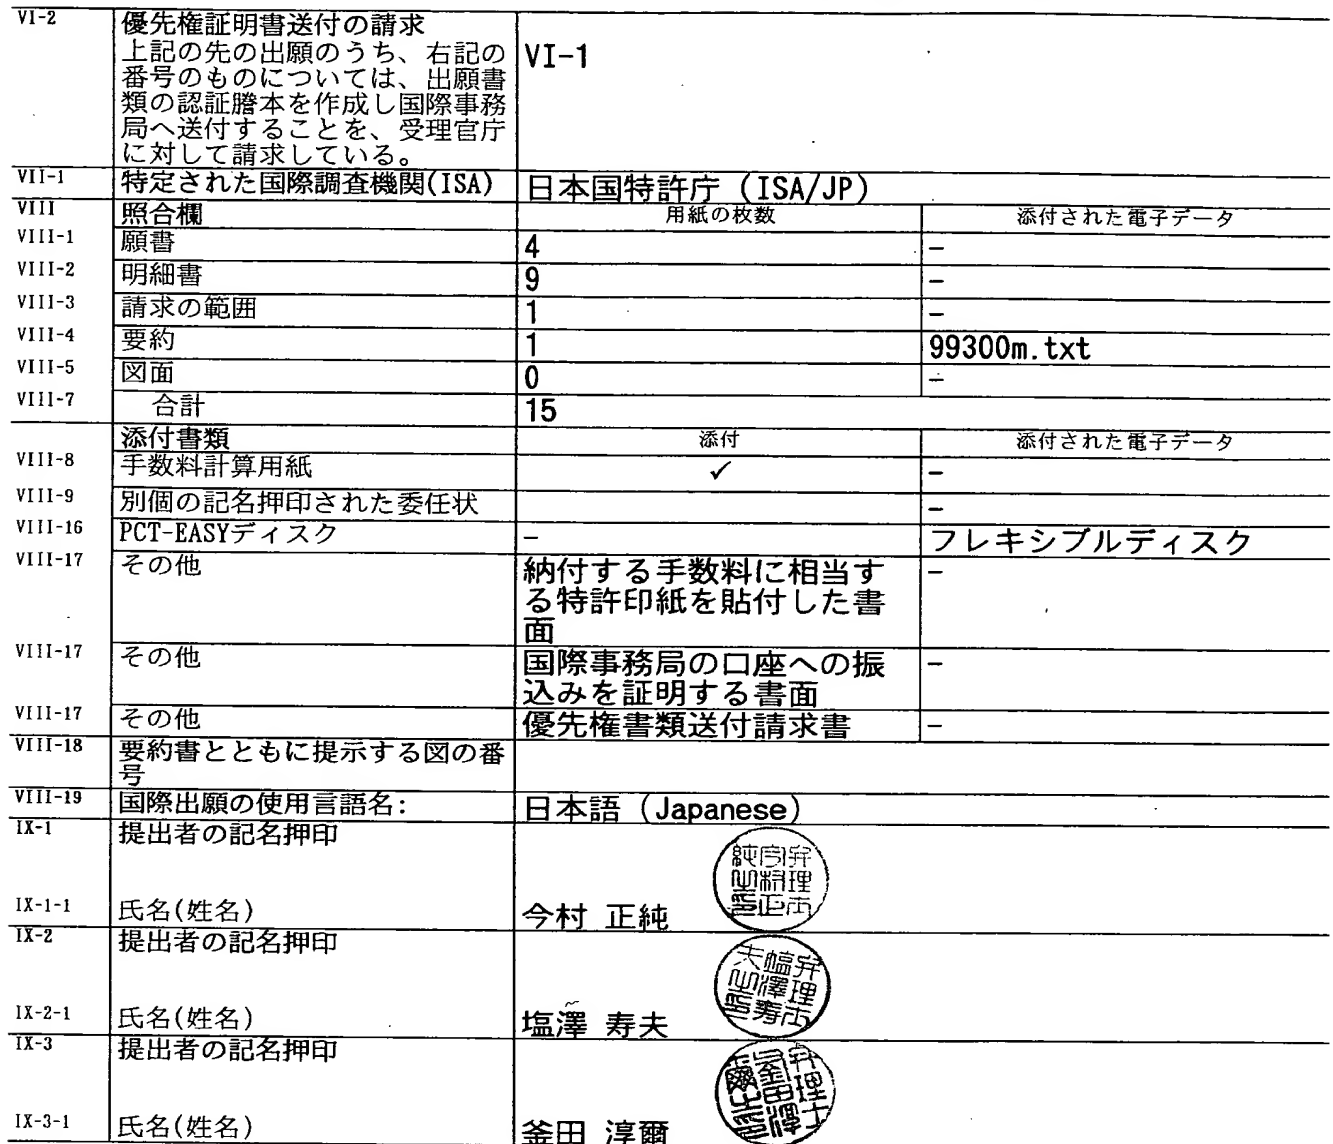 VI-2 優先権証明書送付の請求
上記の先の出願のうち、右記の VI-1
番号のものについては、出願書
類の認証謄本を作成し国際事務
局へ送付することを、受理官庁
に対して請求している。
VII-1 特定された国際調査機関(ISA) 日本国特許庁 (ISA/JP)
VIII 照合欄 用紙の枚数 添付された電子データ
VIII-1 願書 4 -
VIII-2 明細書 9 -
VIII-3 請求の範囲 1 -
VIII-4 要約 1 99300m.txt
VIII-5 図面 0 -
VIII-7 合計 15
添付書類 添付 添付された電子データ
VIII-8 手数料計算用紙 ✓ -
VIII-9 別個の記名押印された委任状 -
VIII-16 PCT-EASYディスク - フレキシブルディスク
VIII-17 その他 納付する手数料に相当す -
る特許印紙を貼付した書
面
VIII-17 その他 国際事務局の口座への振 -
込みを証明する書面
VIII-17 その他 優先権書類送付請求書 -
VIII-18 要約書とともに提示する図の番
号
VIII-19 国際出願の使用言語名: 日本語 (Japanese)
IX-1 提出者の記名押印
IX-1-1 氏名(姓名) 今村 正純
IX-2 提出者の記名押印
IX-2-1 氏名(姓名) 塩澤 寿夫
IX-3 提出者の記名押印
IX-3-1 氏名(姓名) 釜田 淳爾